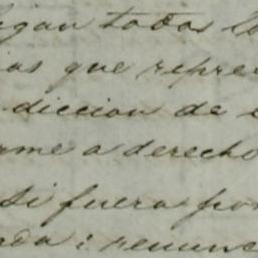 digan todos lo
ias que repre
diccion de e
rme a derecho
si fuera por
nda i renunc